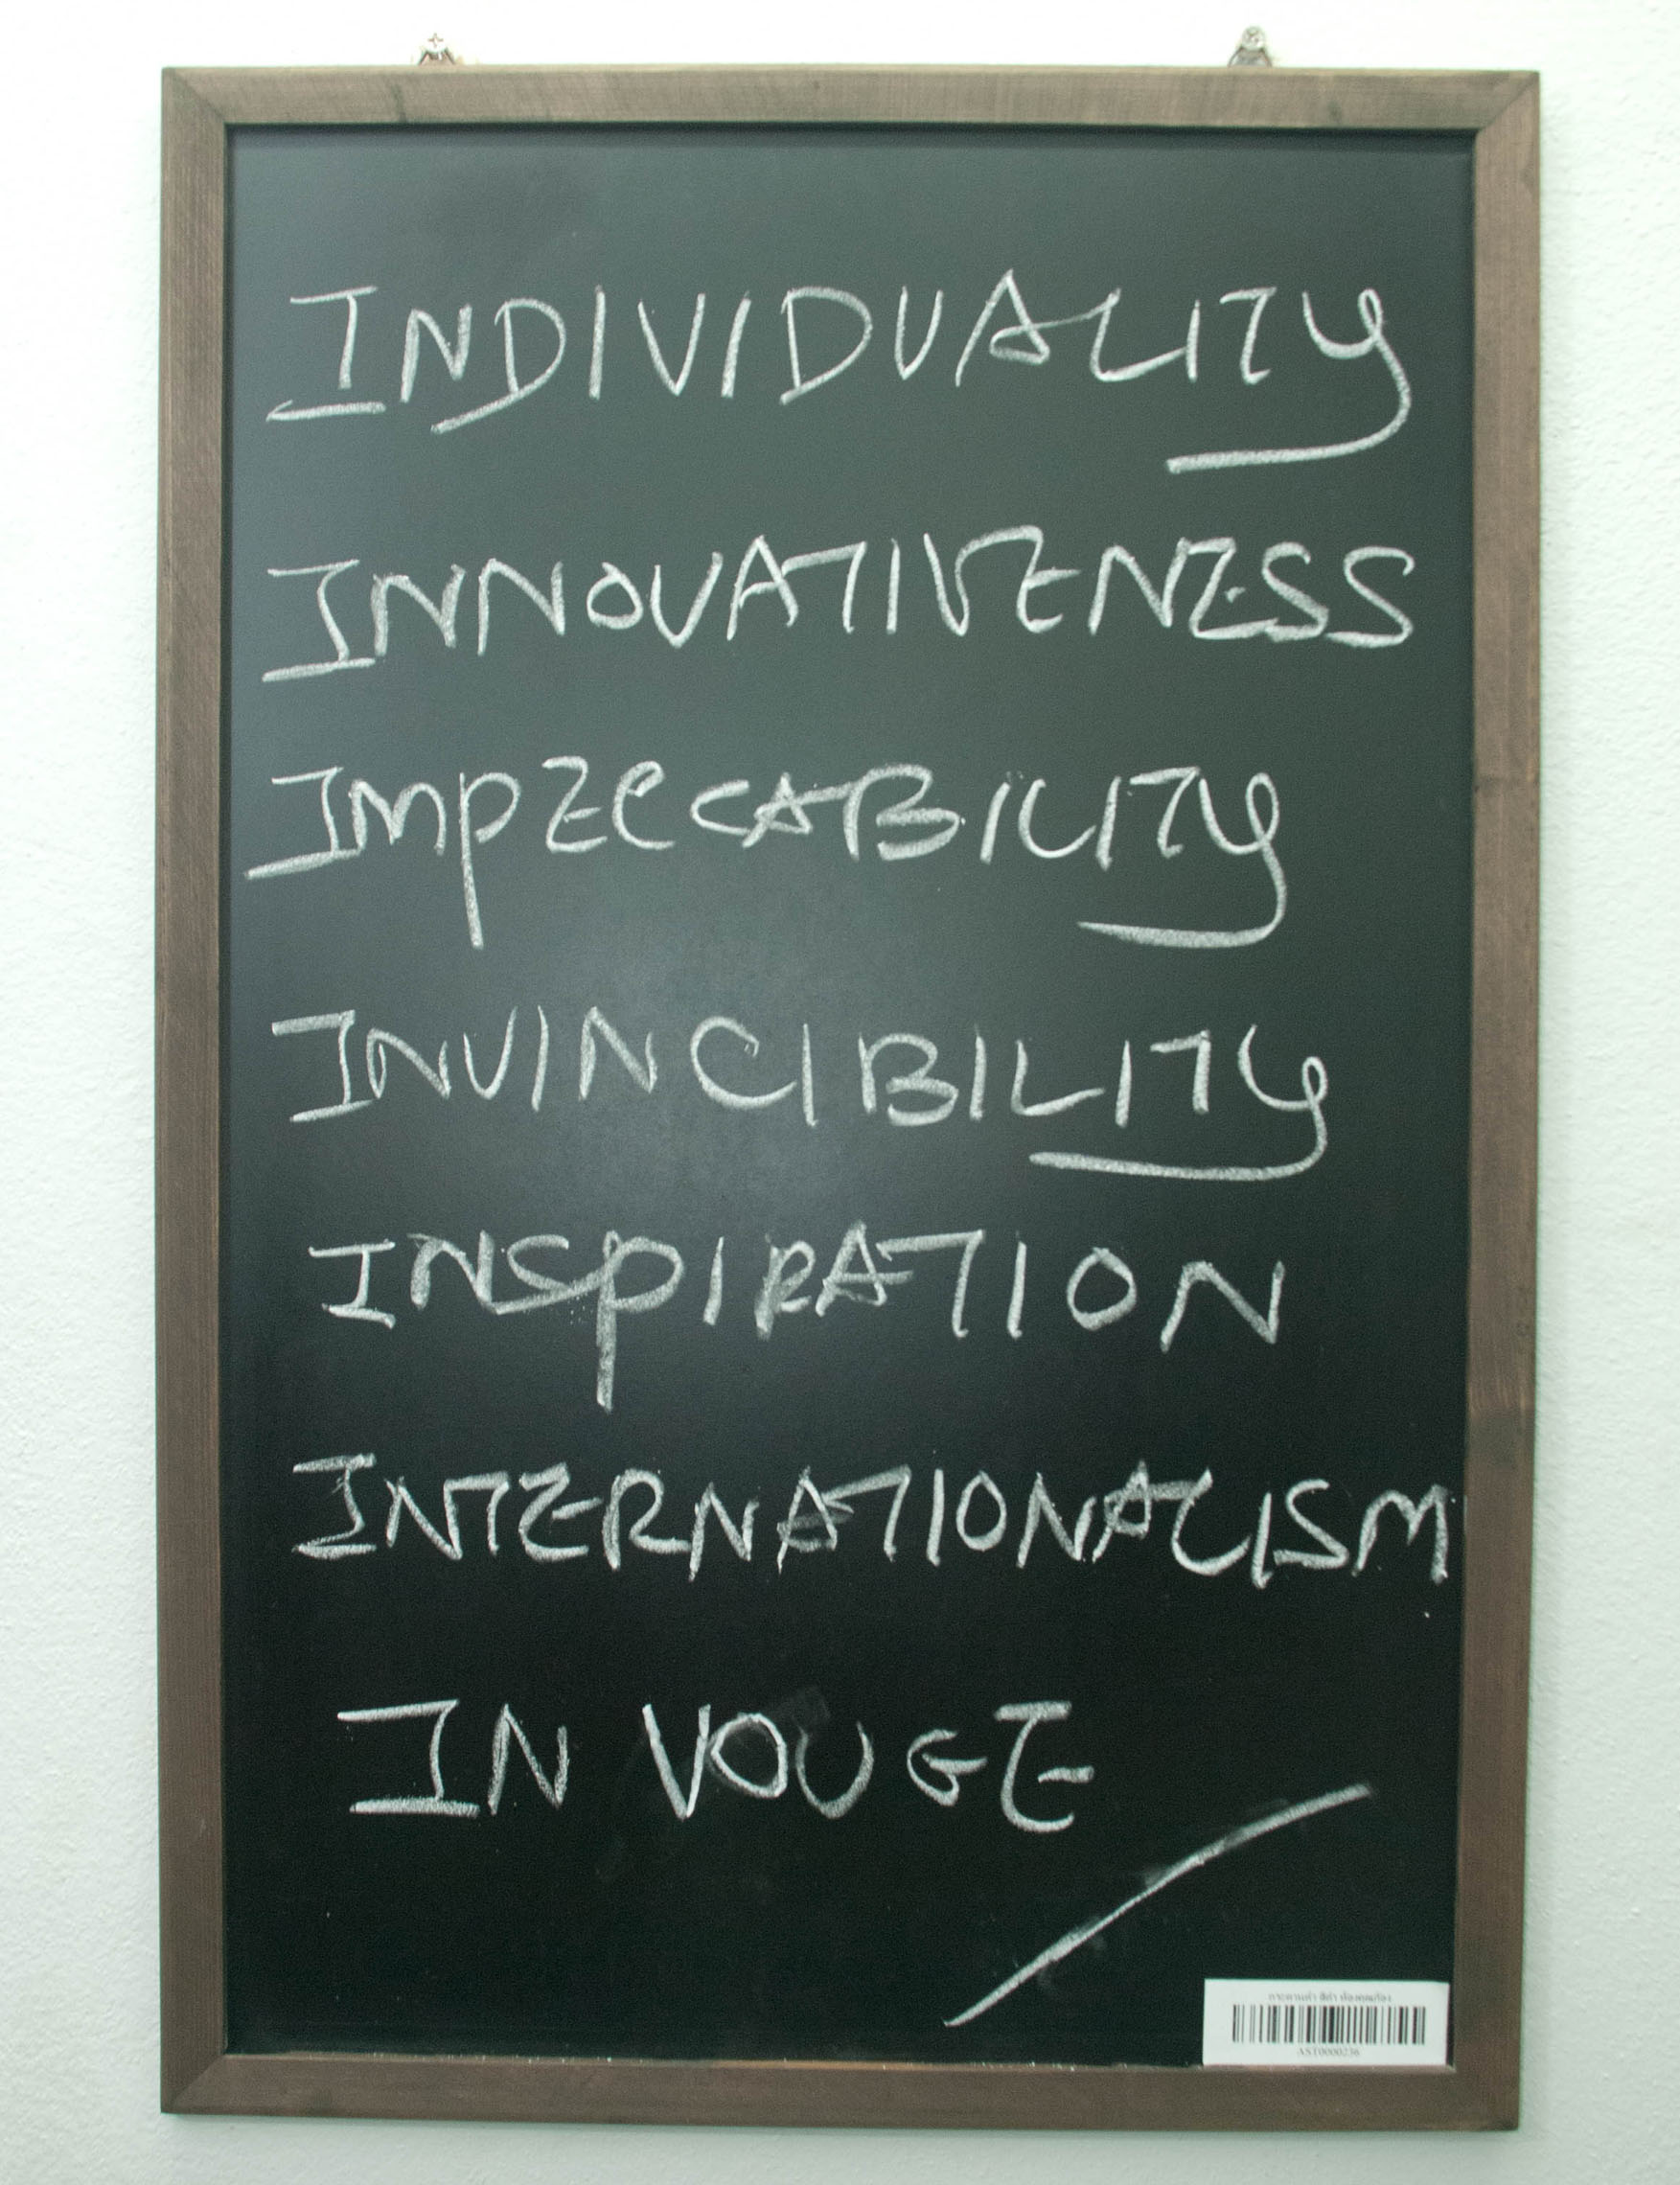 INDIVIDUALITY
INNOVATIVENESS
IMPECCABILITY
INVINCIBILITY
INSPIRATION
INTERNATIONALISM
IN VOUGE
AST0000236